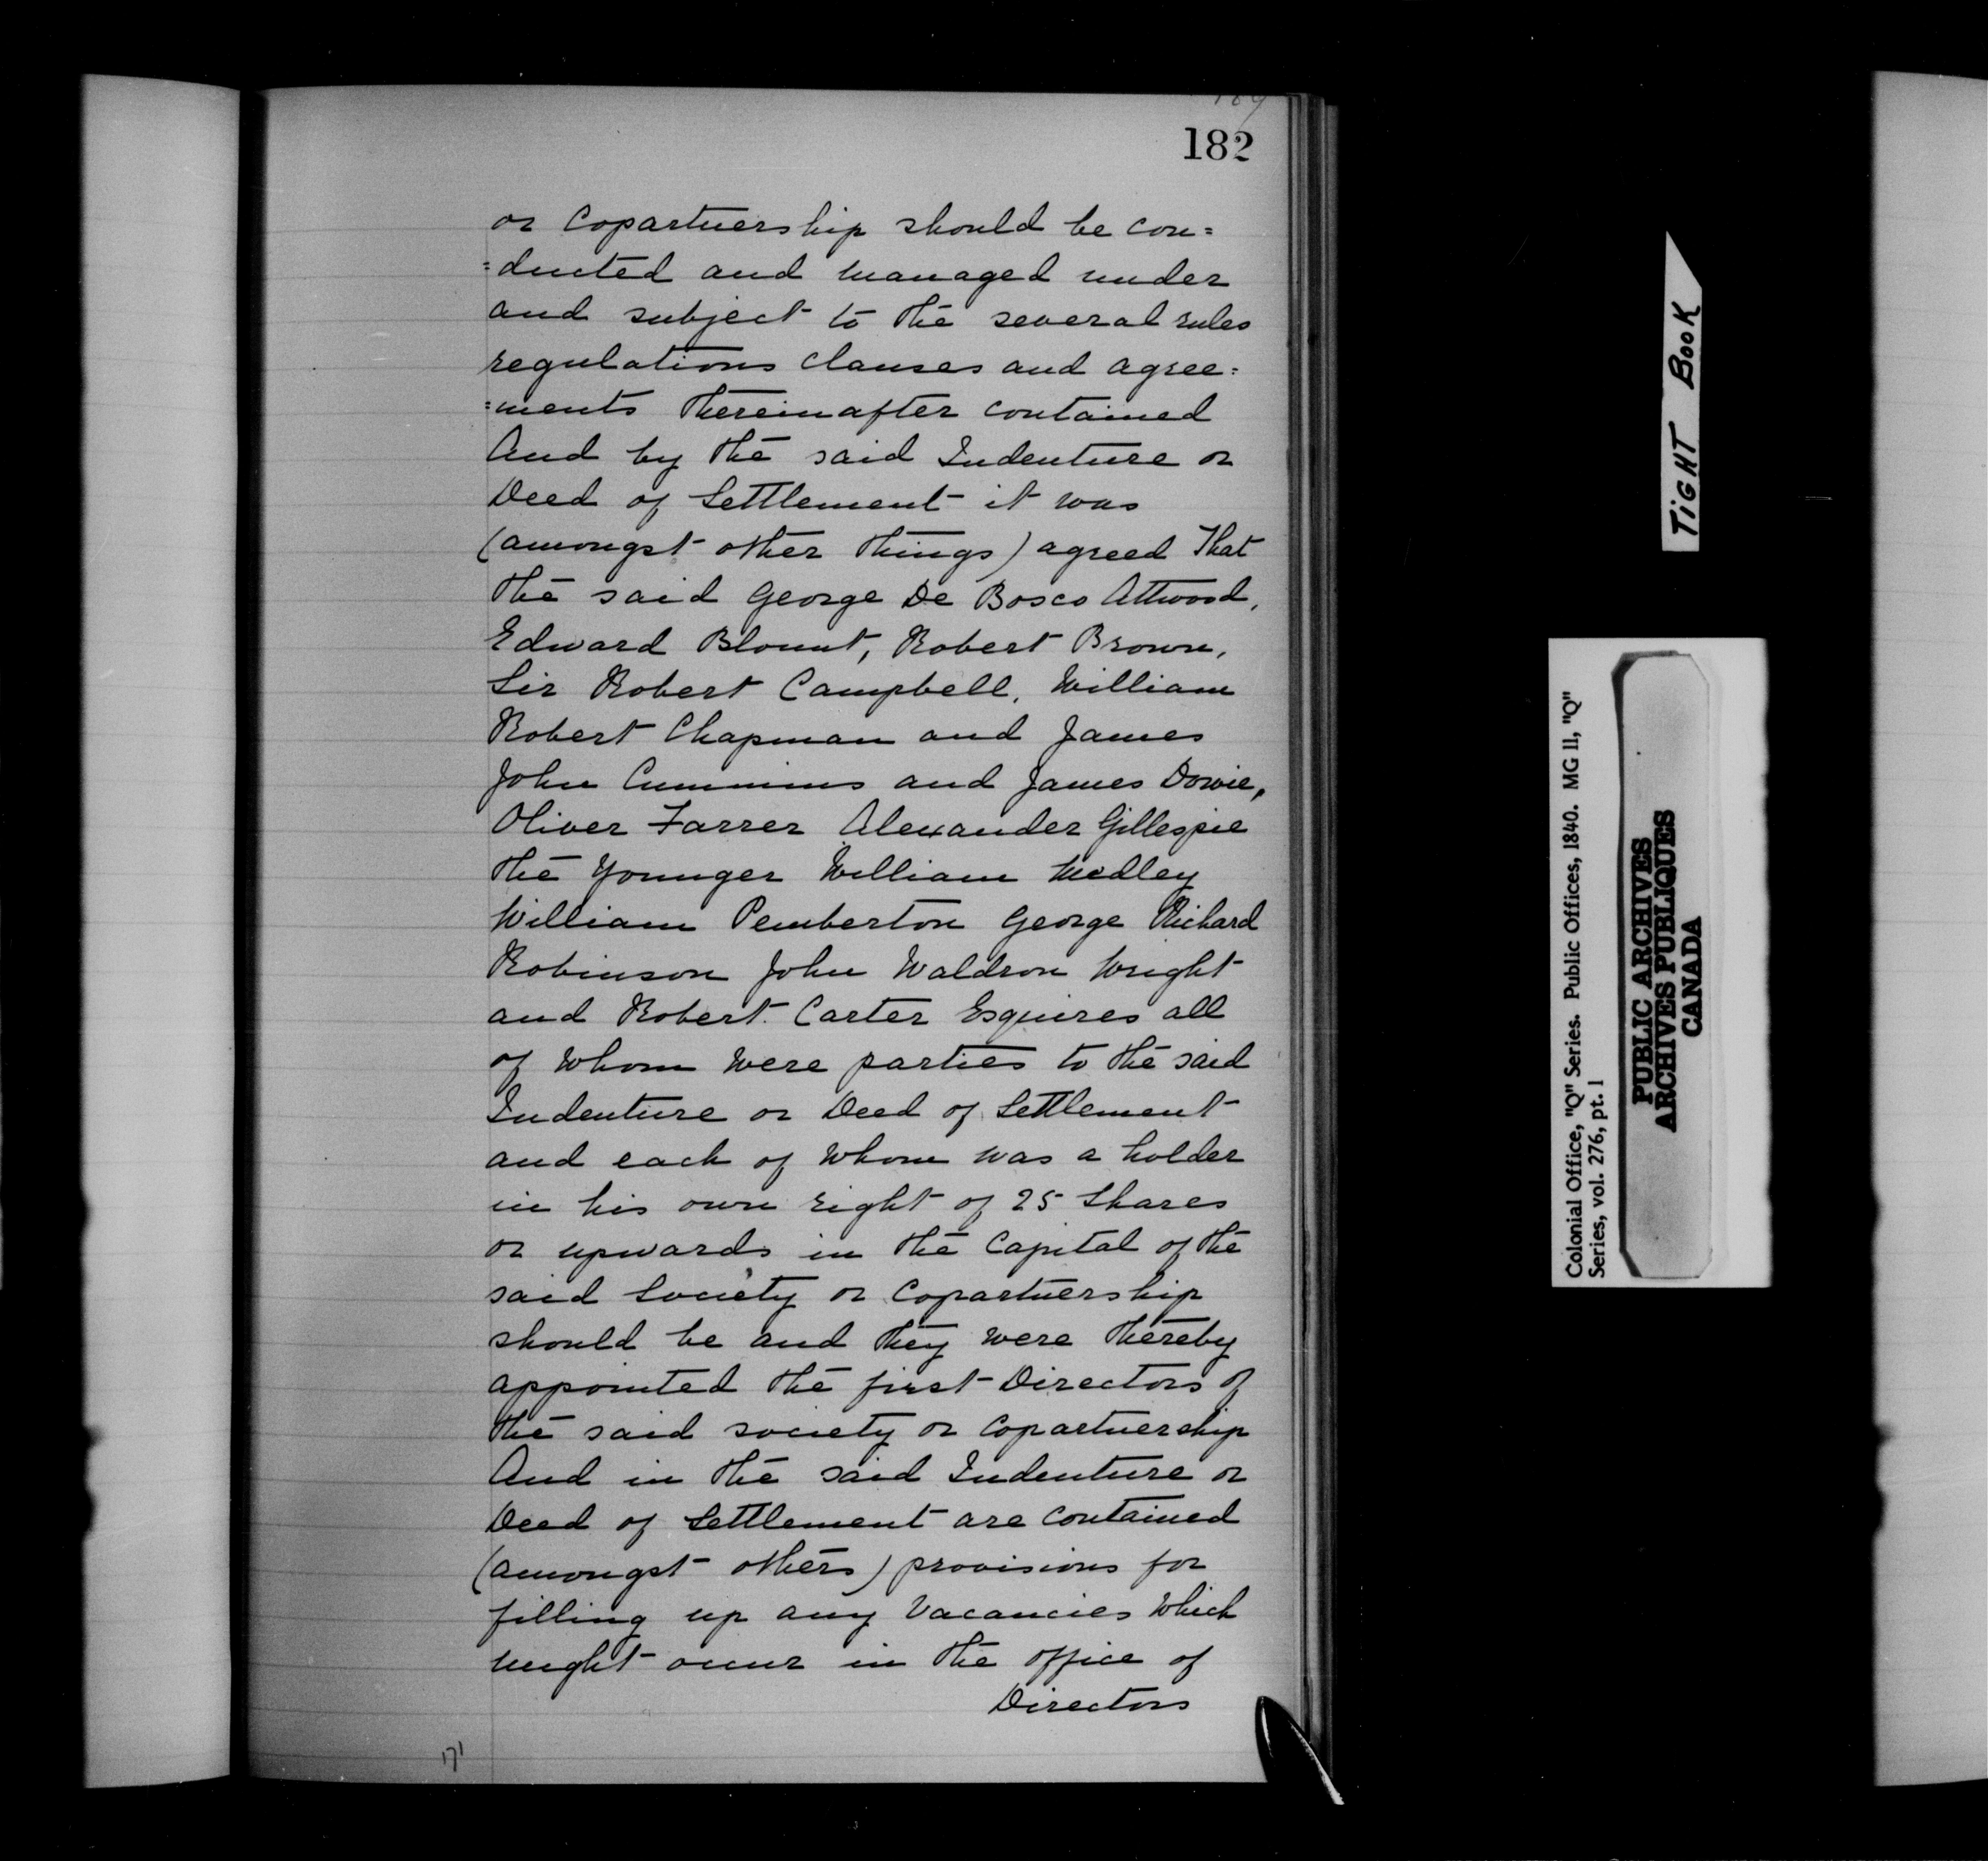 182
or Copartnership should be con=
=ducted and managed under
and subject to the several rules
regulations clauses and agree=
=ments thereinafter contained
And by the said Indenture or
Deed of Settlement it was
(amongst other things) agreed That
the said George De Bosco Attwood,
Edward Blount, Robert Brown,
Sir Robert Campbell, William
Robert Chapman and James
John Cummins and James Dowie,
Oliver Farrer Alexander Gillespie
the Younger William Medley
William Pemberton George Richard
Robinson John Waldron Wright
and Robert Carter Esquires all
of whom were parties to the said
Indenture or Deed of Settlement
and each of whom was a holder
in his own right of 25 Shares
or upwards in the Capital of the
said Society or Copartnership
should be and they were thereby
appointed the first Directors of
the said society or Copartnership
And in the said Indenture or
Deed of Settlement are contained
(amongst others) provisions for
filling up any Vacancies which
might occur in the office of
Directors
171
TIGHT BOOK
Colonial Office, "Q" Series. Public Offices, 1840. MG 11, "Q"
Series, vol. 276, pt. 1
PUBLIC ARCHIVES
ARCHIVES PUBLIQUES
CANADA